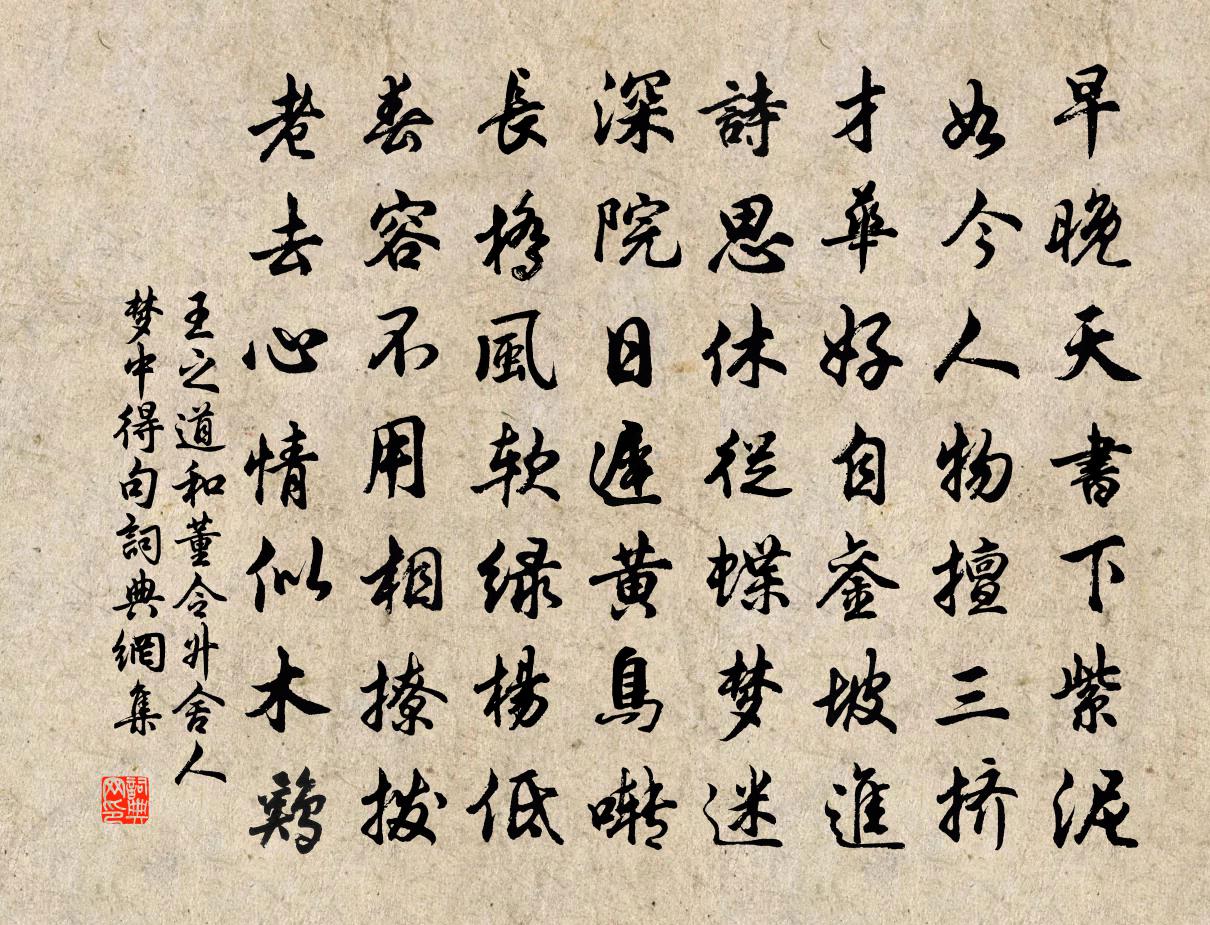 早晚天書下紫泥
如今人物擅三挤
才華好自銮坡進
詩思休從蝶梦迷
深院日遲黄鳥啭
長橋風軟绿楊低
春容不用相撩拨
老去心情似木鷄
王之道和董令升舍人
梦中得句詞典網集
詞典网印